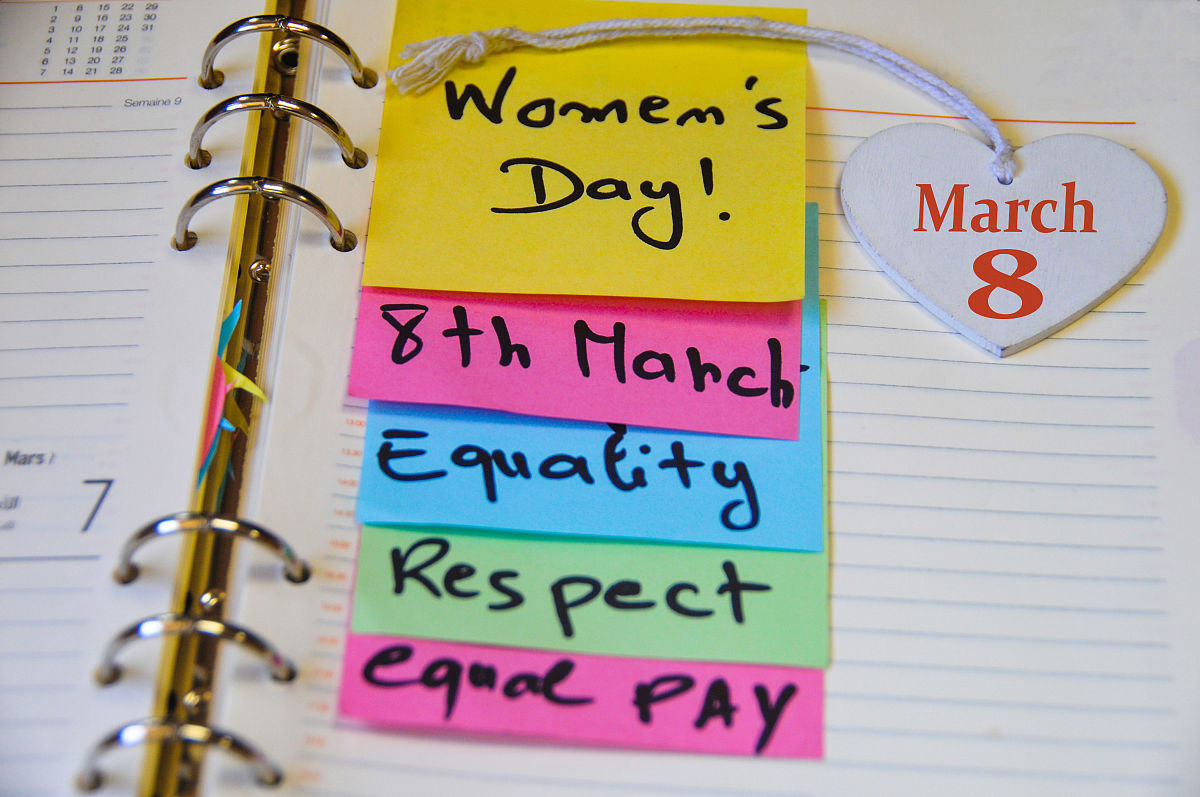 1 8 15 22 29
2 9 16 23 30
3 10 17 24 31
4 11 18 25
5 12 19 26
6 13 20 27
7 14 21 28
Semaine 9
Mars /
7
Women's
Day!
8th March
Equality
Respect
equal PAY
March
8